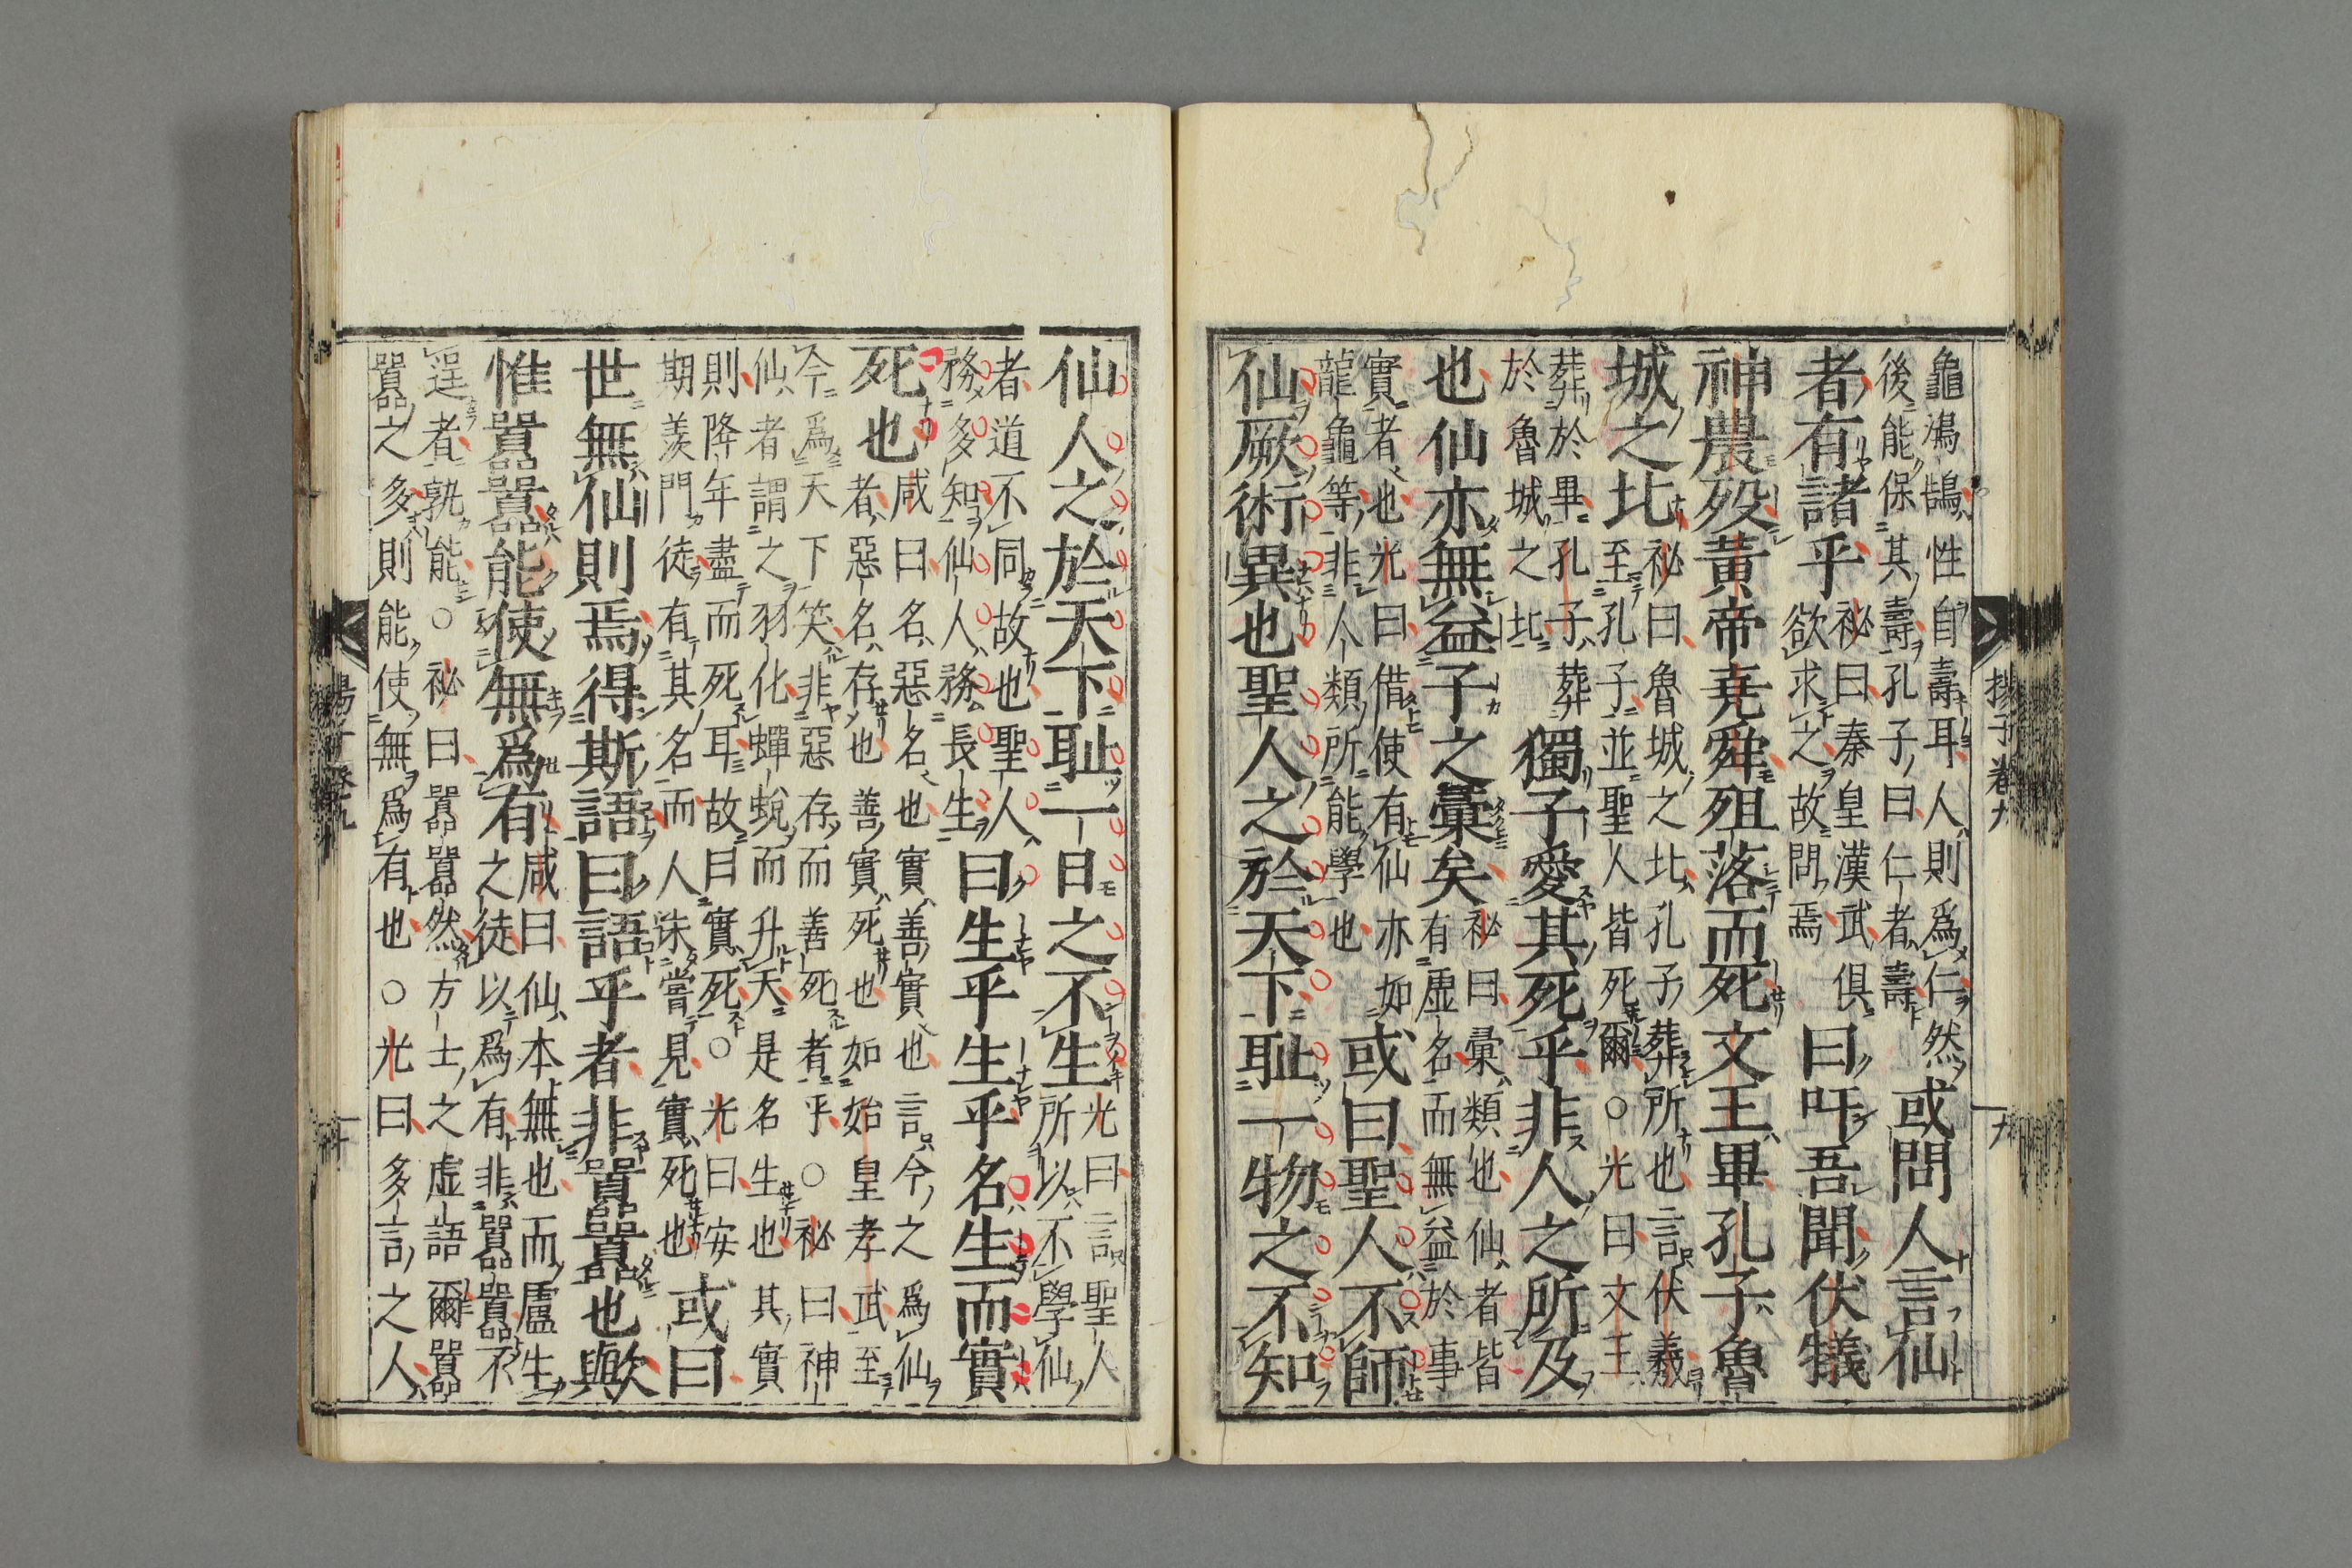 龜鴻鵠性自壽耳人則爲仁然
後能保其壽孔子曰仁者壽
或問人言仙
者有諸乎
祕曰秦皇漢武俱
欲求之故問焉
曰吁吾聞伏犧
神農歿黃帝堯舜殂落而死文王畢孔子魯
城之北
祕曰魯城之北孔子葬所也言伏羲
至孔子並聖人皆死爾○光曰文王
葬於畢孔子葬
於魯城之北
獨子愛其死乎非人之所及
也仙亦無益子之彙矣
祕曰彙類也仙者皆
有虛名而無益於事
實者也光曰借使有仙亦如
龍龜等非人類所能學也
或曰聖人不師
仙厥術異也聖人之於天下恥一物之不知
仙人之於天下恥一日之不生
光曰言聖人
所以不學仙
者道不同故也聖人
務多知仙人務長生
曰生乎生乎名生而實
死也
咸曰名惡名也實善實也言今之爲仙
者惡名存也善實死也如始皇孝武至
今爲天下笑非惡存而善死者乎○祕曰神
仙者謂之羽化蟬蛻而升天是名生也其實
則降年盡而死耳故曰實死○光曰安
期羨門徒有其名而人未嘗見實死也
或曰
世無仙則焉得斯語曰語乎者非囂囂也與
惟囂囂能使無爲有
咸曰仙本無也而盧生
之徒以爲有非囂囂不
逞者孰能○祕曰囂囂然方士之虛語爾囂
囂之多則能使無爲有也○光曰多言之人
揚子卷九
九